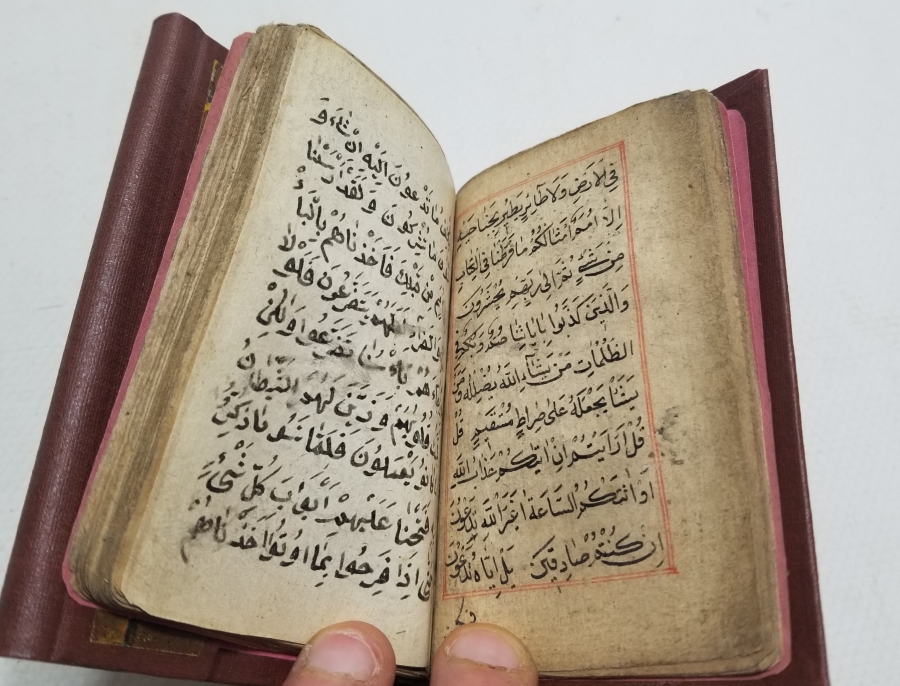 فِي الْاَرْضِ وَلَا طَائِرٍ يَطِيرُ بِجَنَاحَيْهِ
اِلَّا اُمَمٌ اَمْثَالُكُمْ مَا فَرَّطْنَا فِي الْكِتَابِ
مِنْ شَيْءٍ ثُمَّ اِلٰى رَبِّهِمْ يُحْشَرُونَ
وَالَّذِينَ كَذَّبُوا بِاٰيَاتِنَا صُمٌّ وَبُكْمٌ
الظُّلُمَاتِ مَنْ يَشَاءِ اللّٰهُ يُضْلِلْهُ وَمَنْ
يَشَأْ يَجْعَلْهُ عَلٰى صِرَاطٍ مُسْتَقِيمٍ قُلْ
قُلْ اَرَاَيْتُمْ اِنْ اَتٰيكُمْ عَذَابُ اللّٰهِ
اَوْ اَتَتْكُمُ السَّاعَةُ اَغَيْرَ اللّٰهِ تَدْعُونَ
اِنْ كُنْتُمْ صَادِقِينَ بَلْ اِيَّاهُ تَدْعُونَ
مَا تَدْعُونَ اِلَيْهِ اِنْ شَاءَ وَ
مَا تُشْرِكُونَ وَلَقَدْ اَرْسَلْنَا
مِنْ قَبْلِكَ فَاَخَذْنَاهُمْ بِالْبَاْ
لَعَلَّهُمْ يَتَضَرَّعُونَ فَلَوْلَا
بَاْسُنَا تَضَرَّعُوا وَلٰكِنْ
قُلُوبُهُمْ وَزَيَّنَ لَهُمُ الشَّيْطَانُ
يَعْمَلُونَ فَلَمَّا نَسُوا مَا ذُكِّرُوا
فَتَحْنَا عَلَيْهِمْ اَبْوَابَ كُلِّ شَيْءٍ
اِذَا فَرِحُوا بِمَا اُوتُوا اَخَذْنَاهُمْ